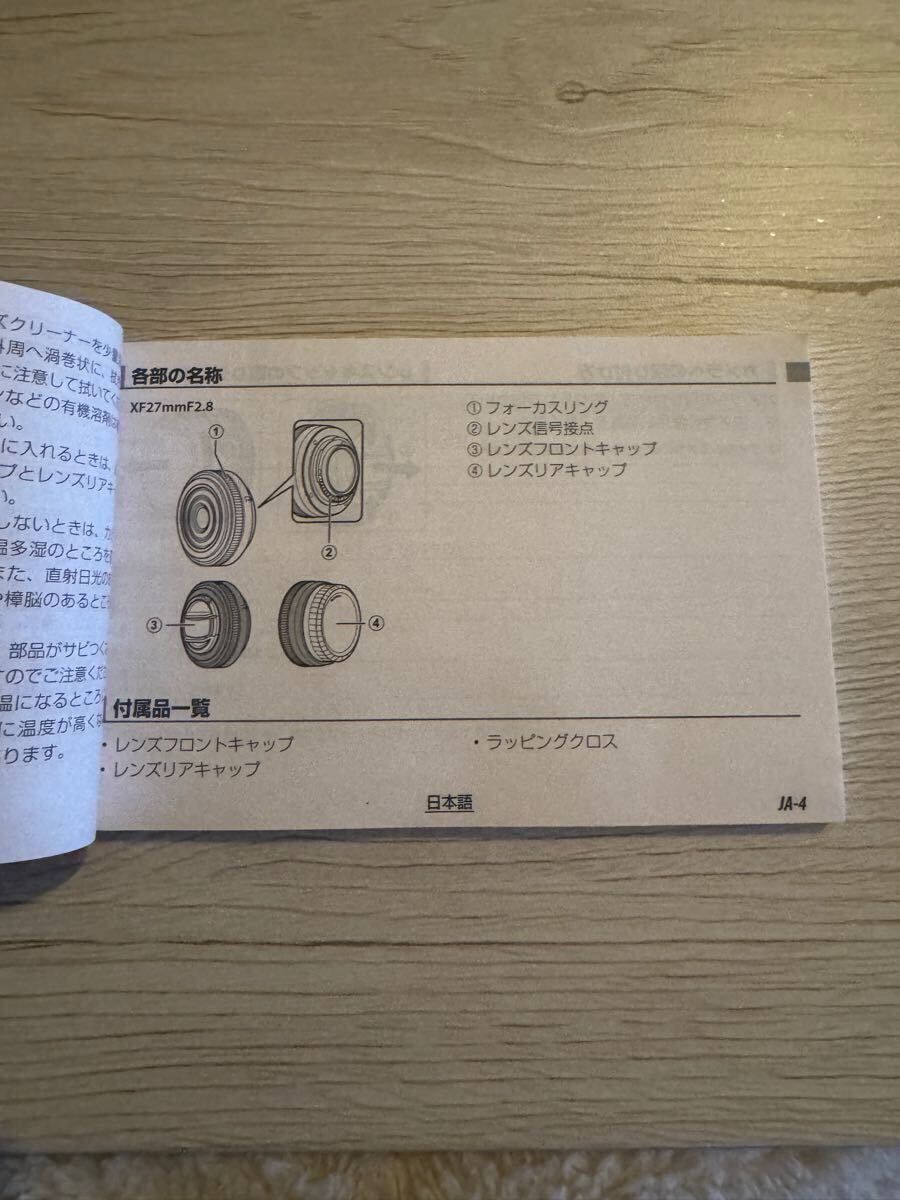 ズクリーナーを少量
外周へ渦巻状に、拭
に注意して拭いてく
ンなどの有機溶剤
い。
に入れるときは、
プとレンズリアキ
い。
しないときは、か
温多湿のところを
また、直射日光の
や樟脳のあるとこ
部品がサビつく
すのでご注意くだ
温になるところ
に温度が高く
ります。
各部の名称
XF27mmF2.8
①
②
③
④
①フォーカスリング
②レンズ信号接点
③レンズフロントキャップ
④レンズリアキャップ
付属品一覧
・レンズフロントキャップ
・レンズリアキャップ
・ラッピングクロス
日本語
JA-4